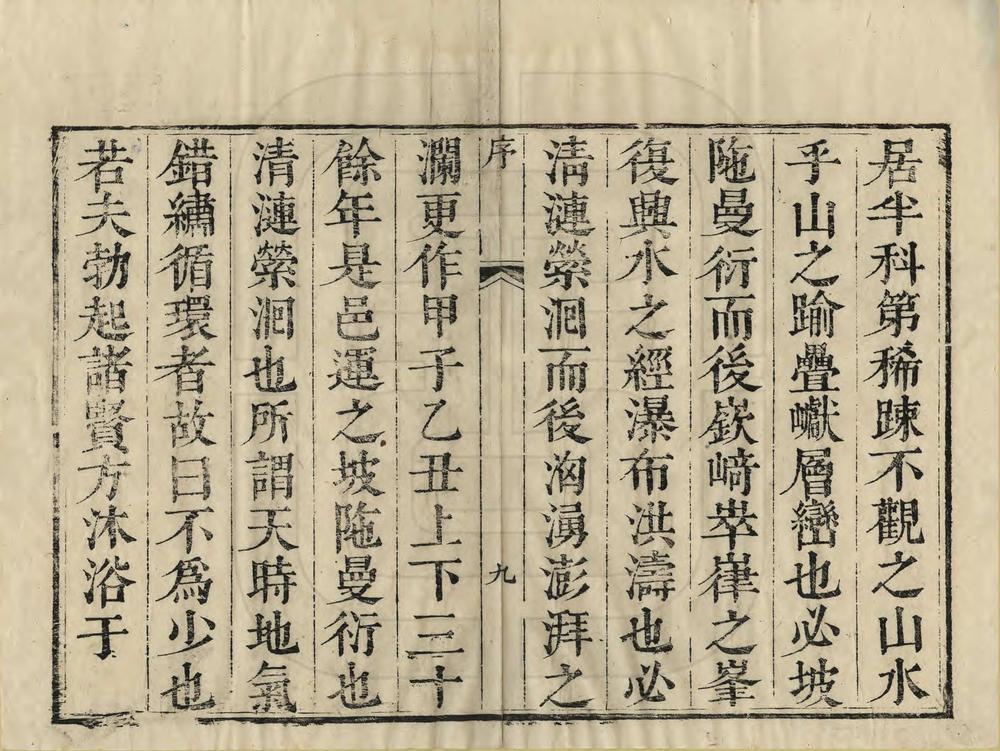 居半科第稀踈不觀之山水
乎山之踰疊巘層巒也必坡
陁曼衍而後嶔﨑崒嵂之峯
復興水之經瀑布洪濤也必
淸漣縈洄而後洶湧澎湃之
序
九
瀾更作甲子乙丑上下三十
餘年是邑運之坡陁曼衍也
清漣縈洄也所謂天時地氣
錯繡循環者故曰不爲少也
若夫勃起諸賢方沐浴于